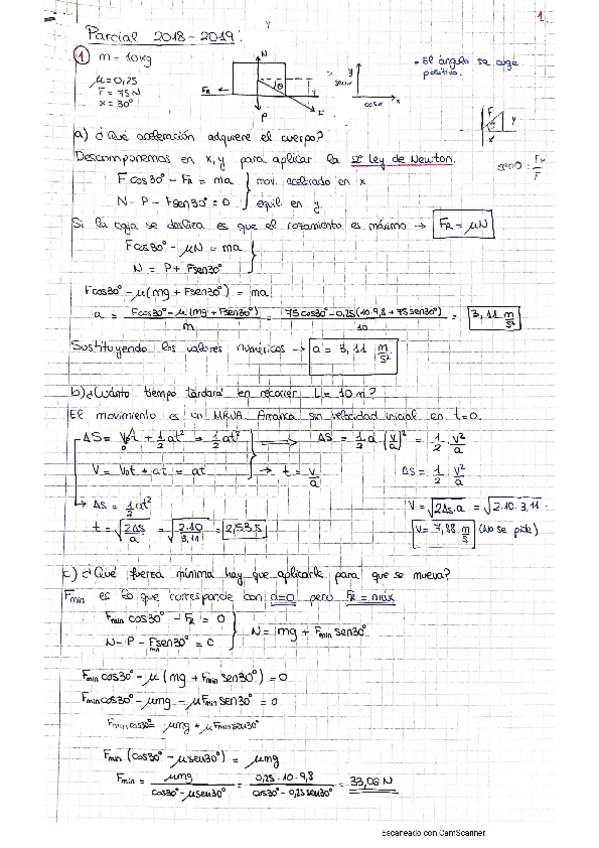 1
Parcial 2018-2019:
1 m = 10 kg
μ = 0,25
F = 75 N
α = 30°
N
FR
θ
P
F
y
senα
cosα
x
• El ángulo se coge
positivo.
F
y
x
senθ = Fy/F
a) ¿Qué aceleración adquiere el cuerpo?
Descomponemos en x, y para aplicar la 2ª Ley de Newton.
F cos30° - FR = ma } mov. acelerado en x
N - P - Fsen30° = 0 } equil. en y
Si la caja se desliza es que el rozamiento es máximo → FR = μN
Fcos30° - μN = ma
N = P + Fsen30°
Fcos30° - μ(mg + Fsen30°) = ma
a = Fcos30° - μ(mg + Fsen30°)/m = 75cos30° - 0,25(10·9,8 + 75sen30°)/10 = 3,11 m/s²
Sustituyendo los valores numéricos → a = 3,11 m/s²
b) ¿Cuánto tiempo tardará en recorrer L = 10 m?
El movimiento es un MRUA. Arranca sin velocidad inicial en t=0.
ΔS = V₀t + 1/2 at² = 1/2 at² ⟹ ΔS = 1/2 a · (v/a)² = 1/2 · v²/a
V = V₀t + at = at → t = v/a
ΔS = 1/2 · v²/a
ΔS = 1/2 at²
V = √2ΔS·a = √2·10·3,11
t = √2ΔS/a = √2·10/3,11 = 2,53 s
V = 7,88 m/s (No se pide)
c) ¿Qué fuerza mínima hay que aplicarle para que se mueva?
Fmin es la que corresponde con a=0 pero FR = máx
Fmin cos30° - FR = 0
N - P - Fmin sen30° = 0
N = mg + Fmin sen30°
Fmin cos30° - μ(mg + Fmin sen30°) = 0
Fmin cos30° - μmg - μFmin sen30° = 0
Fmin cos30° = μmg + μFmin sen30°
Fmin (cos30° - μsen30°) = μmg
Fmin = μmg/cos30° - μsen30° = 0,25·10·9,8/cos30° - 0,25sen30° = 33,06 N
Escaneado con CamScanner